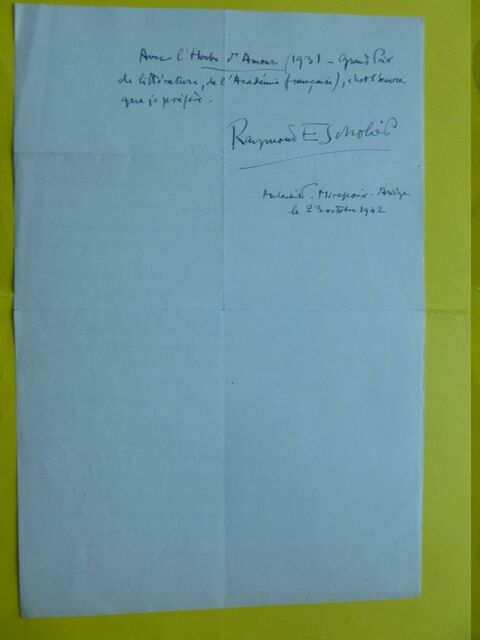 Avec l'Herbe d'Amour (1931 – Grand Prix
de littérature, de l'Académie française), c'est l'œuvre
que je préfère.
Raymond Escholier
Mirepoix - Ariège
le 23 octobre 1942